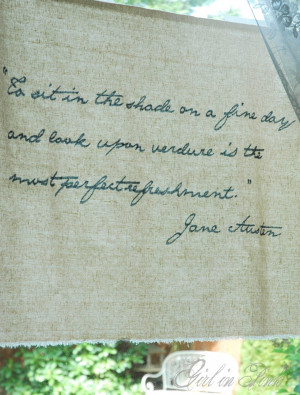 "To sit in the shade on a fine day
and look upon verdure is the
most perfect refreshment."
Jane Austen
Girl in